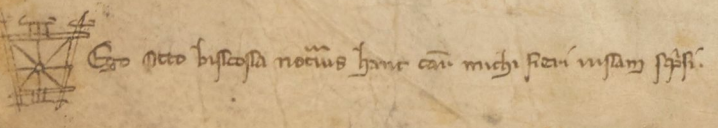 Ego Otto biscosia notarius hanc cartam michi fieri iussam scripsi.